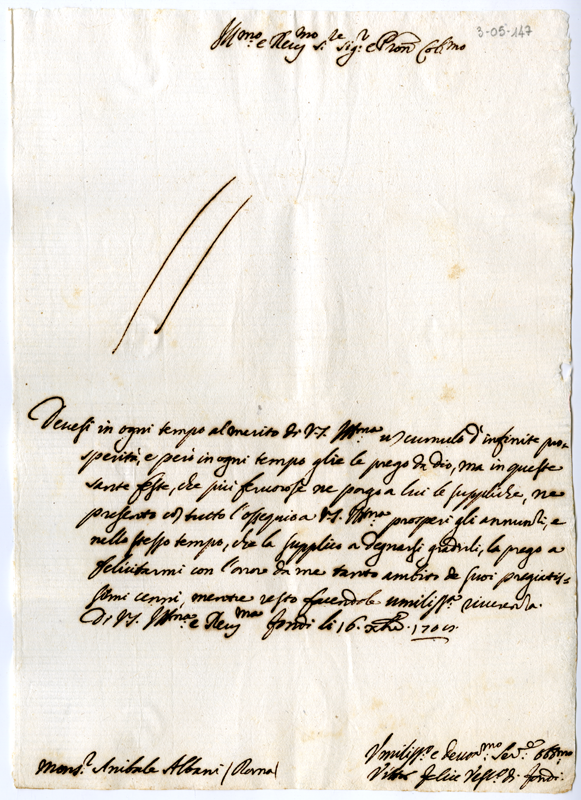 Ill.mo e Reu.mo Sig.r Sig.r e Pron Col.mo
3-05-147
Deuesi in ogni tempo al merito di V.S. Ill.ma un cumulo d'infinite pro-
sperità, e però in ogni tempo glie le prego da Dio, ma in queste
sante feste, che più feruorose ne porgo a lui le suppliche, ne
presento co tutto l'ossequio a V.S. Ill.ma prosperi gli annunzi, e
nello stesso tempo, che la supplico a degnarsi gradirli, la prego a
felicitarmi con l'onore da me tanto ambito de suoi pregiatis-
simi cenni, mentre resto facendole umiliss.a riuerenza.
Di V.S. Ill.ma e Reu.ma Fondi li 16. Xbre
Mons.r Anibale Albani (Roma)
Vmiliss.o e deuot.mo Ser.e obb.mo
Vittor Felice Vesc.o di Fondi.